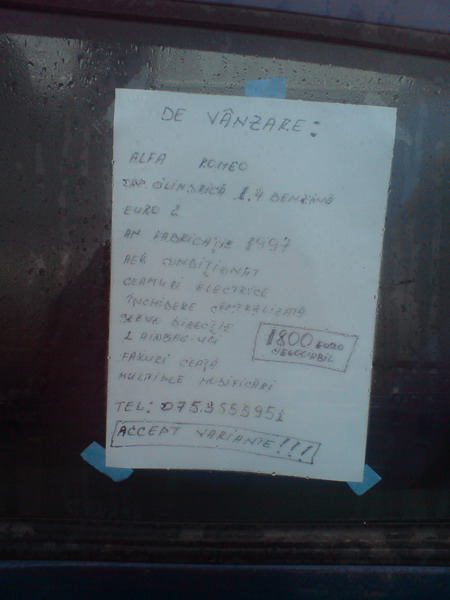 DE VÂNZARE:
ALFA ROMEO
CAP. CILINDRICĂ 1.4 BENZINĂ
EURO 2
AN FABRICAȚIE 1997
AER CONDIȚIONAT
GEAMURI ELECTRICE
ÎNCHIDERE CENTRALIZATĂ
SERVO DIRECȚIE
2 AIRBAG-URI
1800 EURO
NEGOCIABIL
FARURI CEAȚĂ
MULTIPLE MODIFICĂRI
TEL: 0753555951
ACCEPT VARIANTE!!!